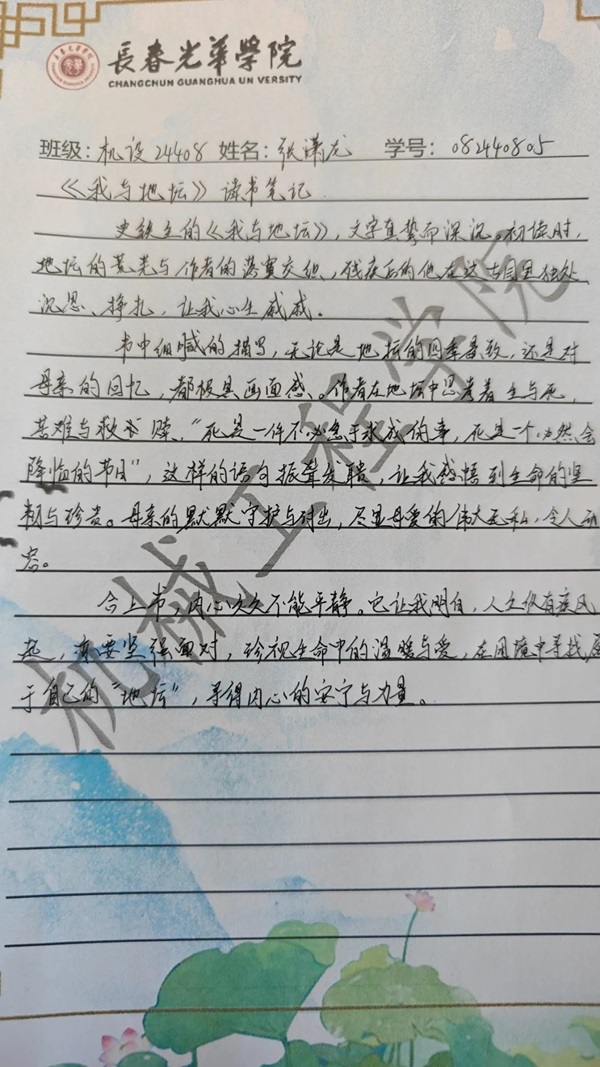 長春光華學院
CHANGCHUN GUANGHUA UNIVERSITY
班级：机设24408 姓名：张潇龙 学号：082440805
《我与地坛》读书笔记
史铁生的《我与地坛》，文字真挚而深沉。初读时，
地坛的荒芜与作者的落寞交织，残疾后的他在这古园里独处
沉思、挣扎，让我心生戚戚。
书中细腻的描写，无论是地坛的四季景致，还是对
母亲的回忆，都极具画面感。作者在地坛中思考着生与死，
苦难与救赎，“死是一件不必急于求成的事，死是一个必然会
降临的节日”，这样的语句振聋发聩，让我感悟到生命的坚
韧与珍贵。母亲的默默守护与付出，尽显母爱的伟大无私，令人动
容。
合上书，内心久久不能平静。它让我明白，人生纵有疾风
起，亦要坚强面对，珍视生命中的温暖与爱，在困境中寻找属
于自己的“地坛”，寻得内心的安宁与力量。
机械工程学院